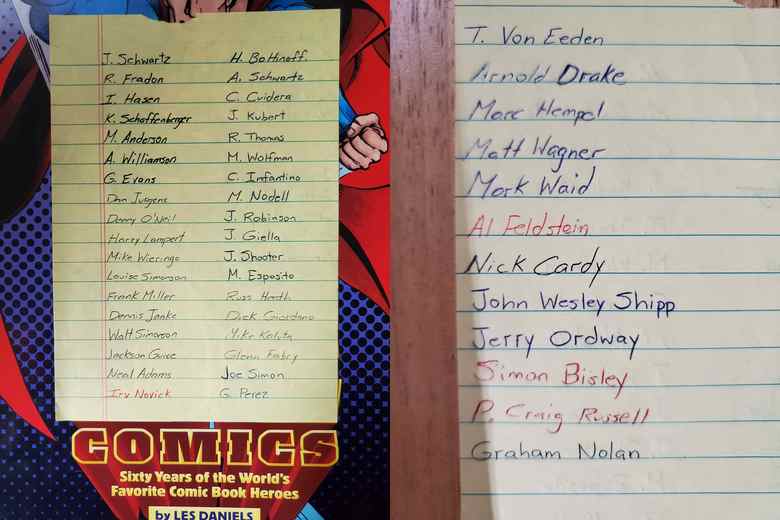 J. Schwartz
R. Fradon
I. Hasen
K. Schaffenberger
M. Anderson
A. Williamson
G. Evans
Dan Jurgens
Denny O'Neil
Harry Lampert
Mike Wieringo
Louise Simonson
Frank Miller
Dennis Janke
Walt Simonson
Jackson Guice
Neal Adams
Irv Novick
H. Boltinoff
A. Schwartz
C. Cuidera
J. Kubert
R. Thomas
M. Wolfman
C. Infantino
M. Nodell
J. Robinson
J. Giella
J. Shooter
M. Esposito
Russ Heath
Dick Giordano
Mike Kaluta
Glenn Fabry
Joe Simon
G. Perez
COMICS
Sixty Years of the World's
Favorite Comic Book Heroes
by LES DANIELS
T. Von Eeden
Arnold Drake
Marc Hempel
Matt Wagner
Mark Waid
Al Feldstein
Nick Cardy
John Wesley Shipp
Jerry Ordway
Simon Bisley
P. Craig Russell
Graham Nolan